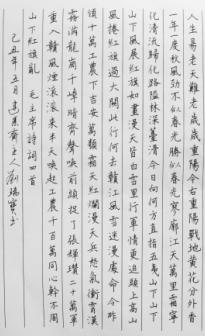 人生易老天难老歲歲重陽今又重陽戰地黄花分外香
一年一度秋風劲不似春光勝似春光寥廓江天萬里霜寧
化清流歸化路隘林深苔滑今日向何方直指武夷山下山下
山下風展紅旗如畫漫天皆白雪里行軍情更迫頭上高山
風捲紅旗過大關此行何去贛江風雪迷漫處命令昨
頒十萬工農下吉安萬類霜天紅爛漫天兵怒氣衝霄漢
霧滿龍岡千嶂暗齊聲唤前頭捉了張輝瓚二十萬軍
重入贛風烟滚滚來天半唤起工農千百萬同心幹不周
山下紅旗亂 毛主席詩詞四首
己丑年五月 建萬齋主人 劉瑞寶书